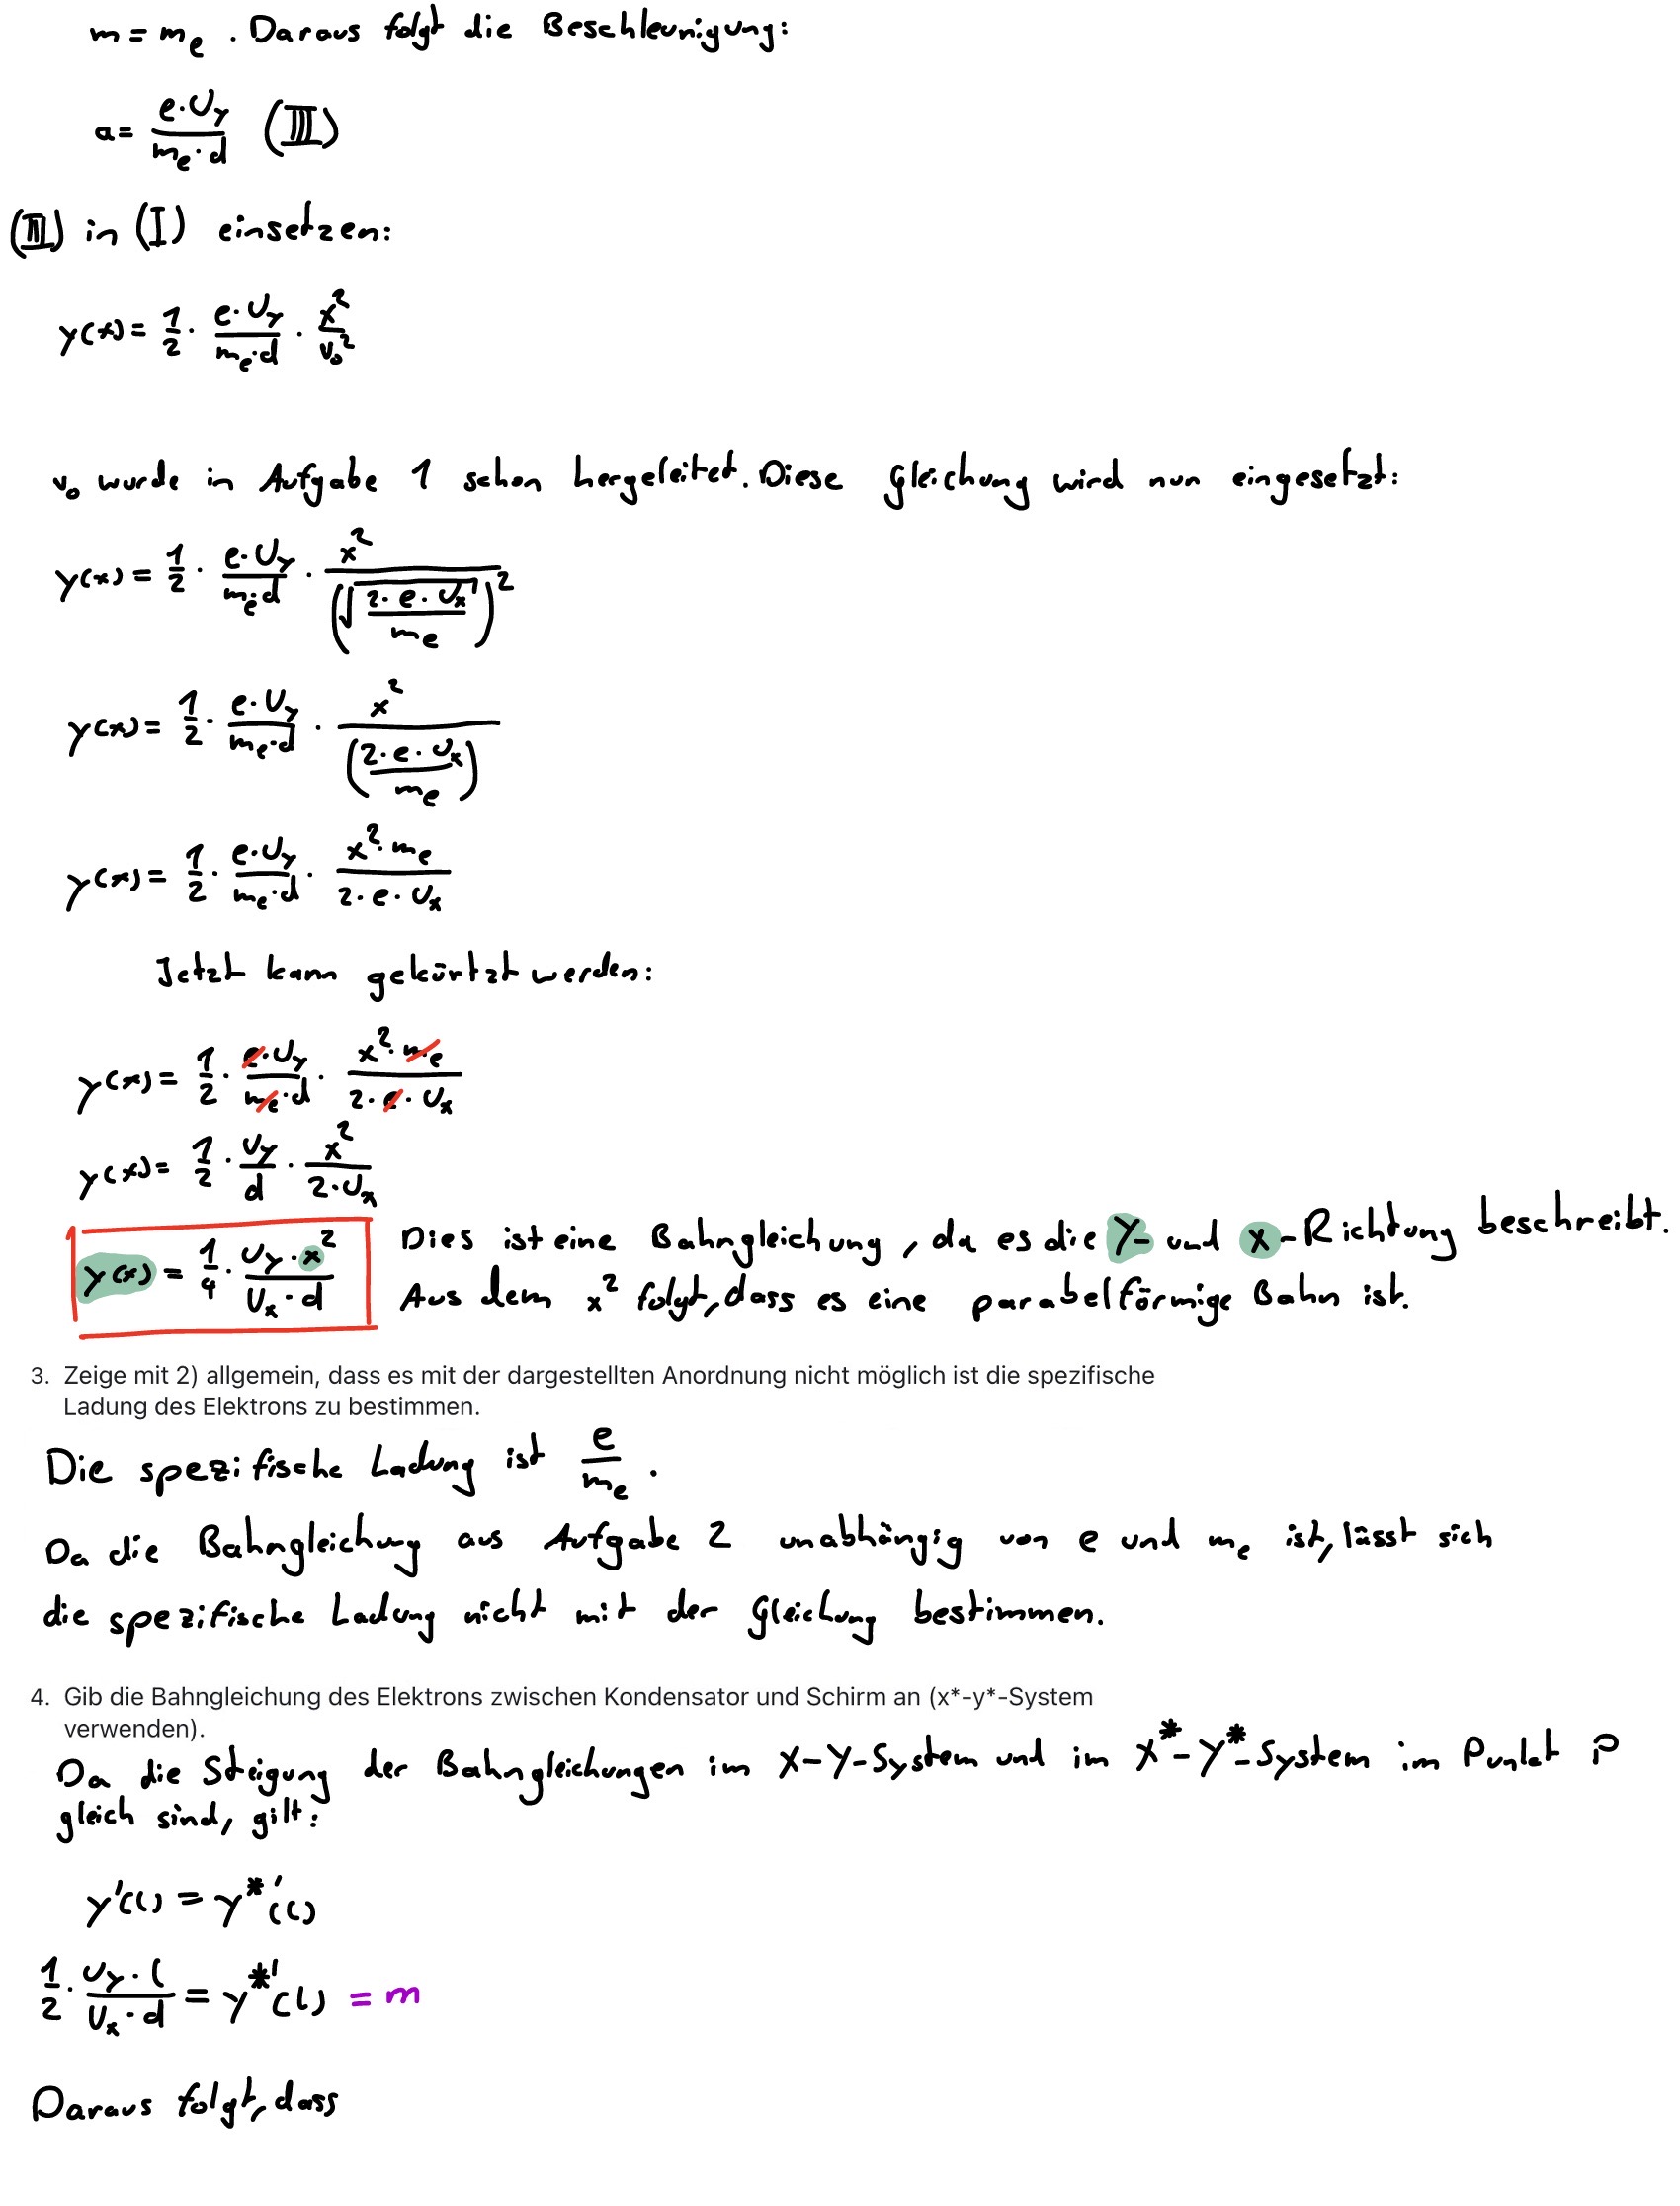 m = mₑ . Daraus folgt die Beschleunigung:
a = e·U_y / (mₑ·d) (III)
(III) in (I) einsetzen:
y(x) = 1/2 · e·U_y / (mₑ·d) · x² / v₀²
v₀ wurde in Aufgabe 1 schon hergeleitet. Diese Gleichung wird nun eingesetzt:
y(x) = 1/2 · e·U_y / (mₑ·d) · x² / (√(2·e·Uₓ / mₑ))²
y(x) = 1/2 · e·U_y / (mₑ·d) · x² / (2·e·Uₓ / mₑ)
y(x) = 1/2 · e·U_y / (mₑ·d) · x²·mₑ / (2·e·Uₓ)
Jetzt kann gekürtzt werden:
y(x) = 1/2 · e·U_y / (mₑ·d) · x²·mₑ / (2·e·Uₓ)
y(x) = 1/2 · U_y / d · x² / (2·Uₓ)
y(x) = 1/4 · U_y·x² / (Uₓ·d)
Dies ist eine Bahngleichung, da es die Y- und x-Richtung beschreibt.
Aus dem x² folgt, dass es eine parabelförmige Bahn ist.
3. Zeige mit 2) allgemein, dass es mit der dargestellten Anordnung nicht möglich ist die spezifische
Ladung des Elektrons zu bestimmen.
Die spezifische Ladung ist e / mₑ .
Da die Bahngleichung aus Aufgabe 2 unabhängig von e und mₑ ist, lässt sich
die spezifische Ladung nicht mit der Gleichung bestimmen.
4. Gib die Bahngleichung des Elektrons zwischen Kondensator und Schirm an (x*-y*-System
verwenden).
Da die Steigung der Bahngleichungen im X-Y-System und im X*-Y*-System im Punkt P
gleich sind, gilt:
y'(l) = y*'(l)
1/2 · U_y·l / (Uₓ·d) = y*'(l) = m
Daraus folgt, dass